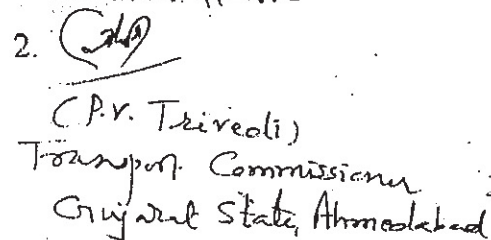 2.
(P.V. Trivedi)
Transport Commissioner
Gujarat State, Ahmedabad